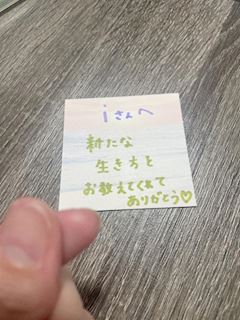 iさんへ
新たな
生き方を
お教えてくれて
ありがとう♡